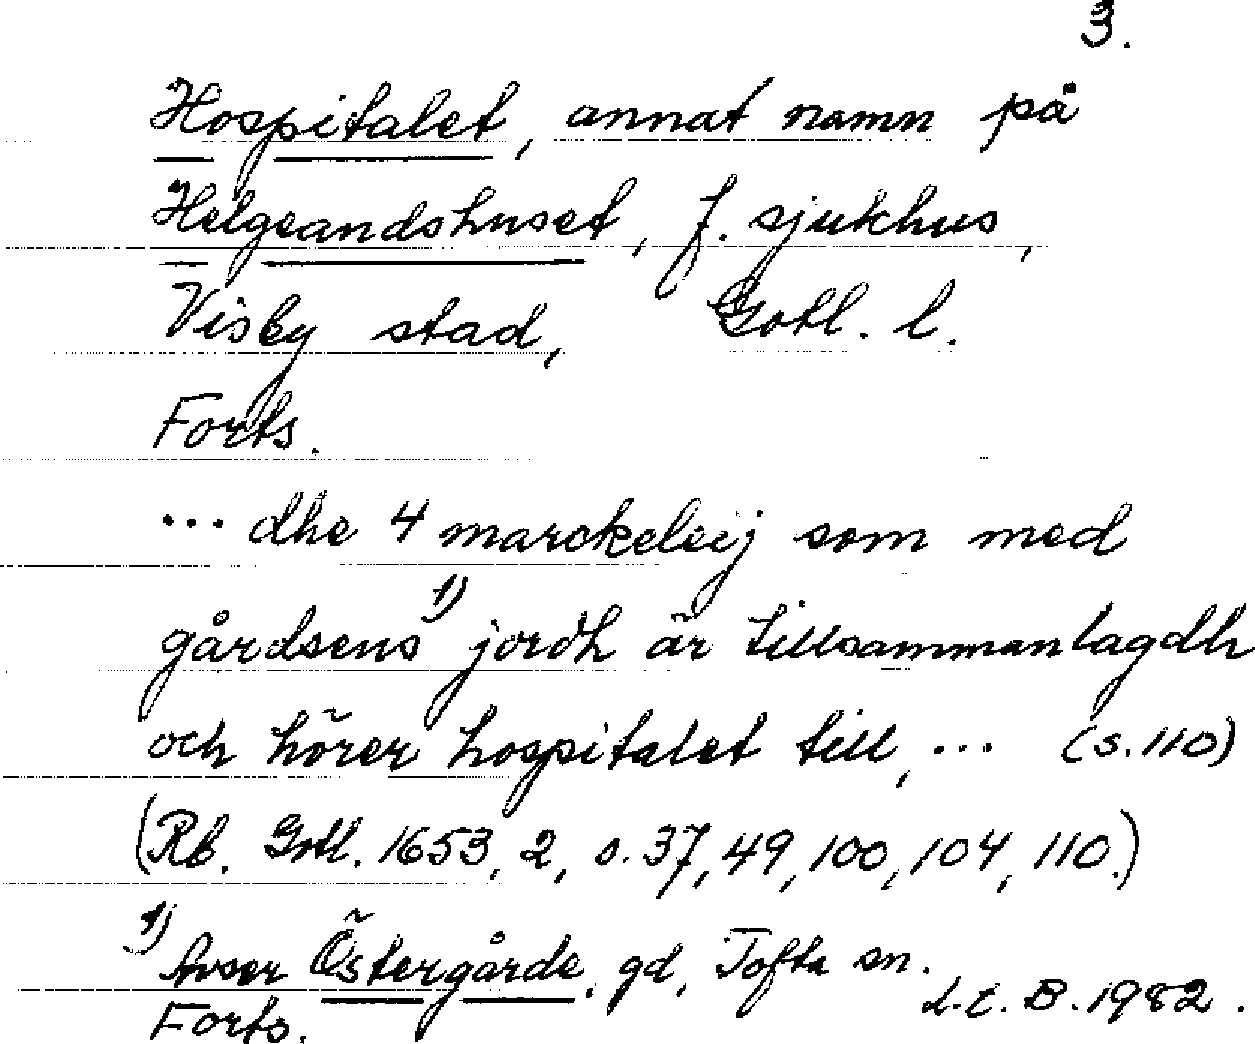 3.
Hospitalet, annat namn på
Helgeandshuset, f. sjukhus,
Visby stad, Gotl. l.
Forts.
... dhe 4 marckeleij som med
gårdsens 1) jordh är tillsammanlagdh
och hörer hospitalet till, ... (s. 110)
(Rb. Gotl. 1653, 2, s. 37, 49, 100, 104, 110.)
1) avser Östergårde, gd, Tofta sn.
Forts. L.E. B. 1982.